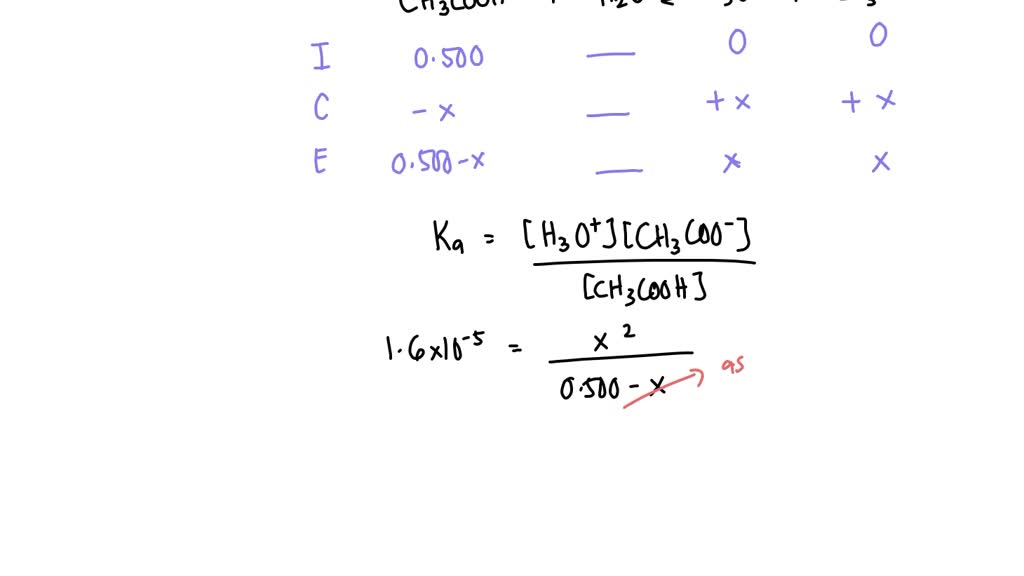 CH3COOH
I 0.500 — 0 0
C - x — + x + x
E 0.500-x — x x
Ka = [H3O+][CH3COO-]
[CH3COOH]
1.6x10-5 = x2
0.500 - x as